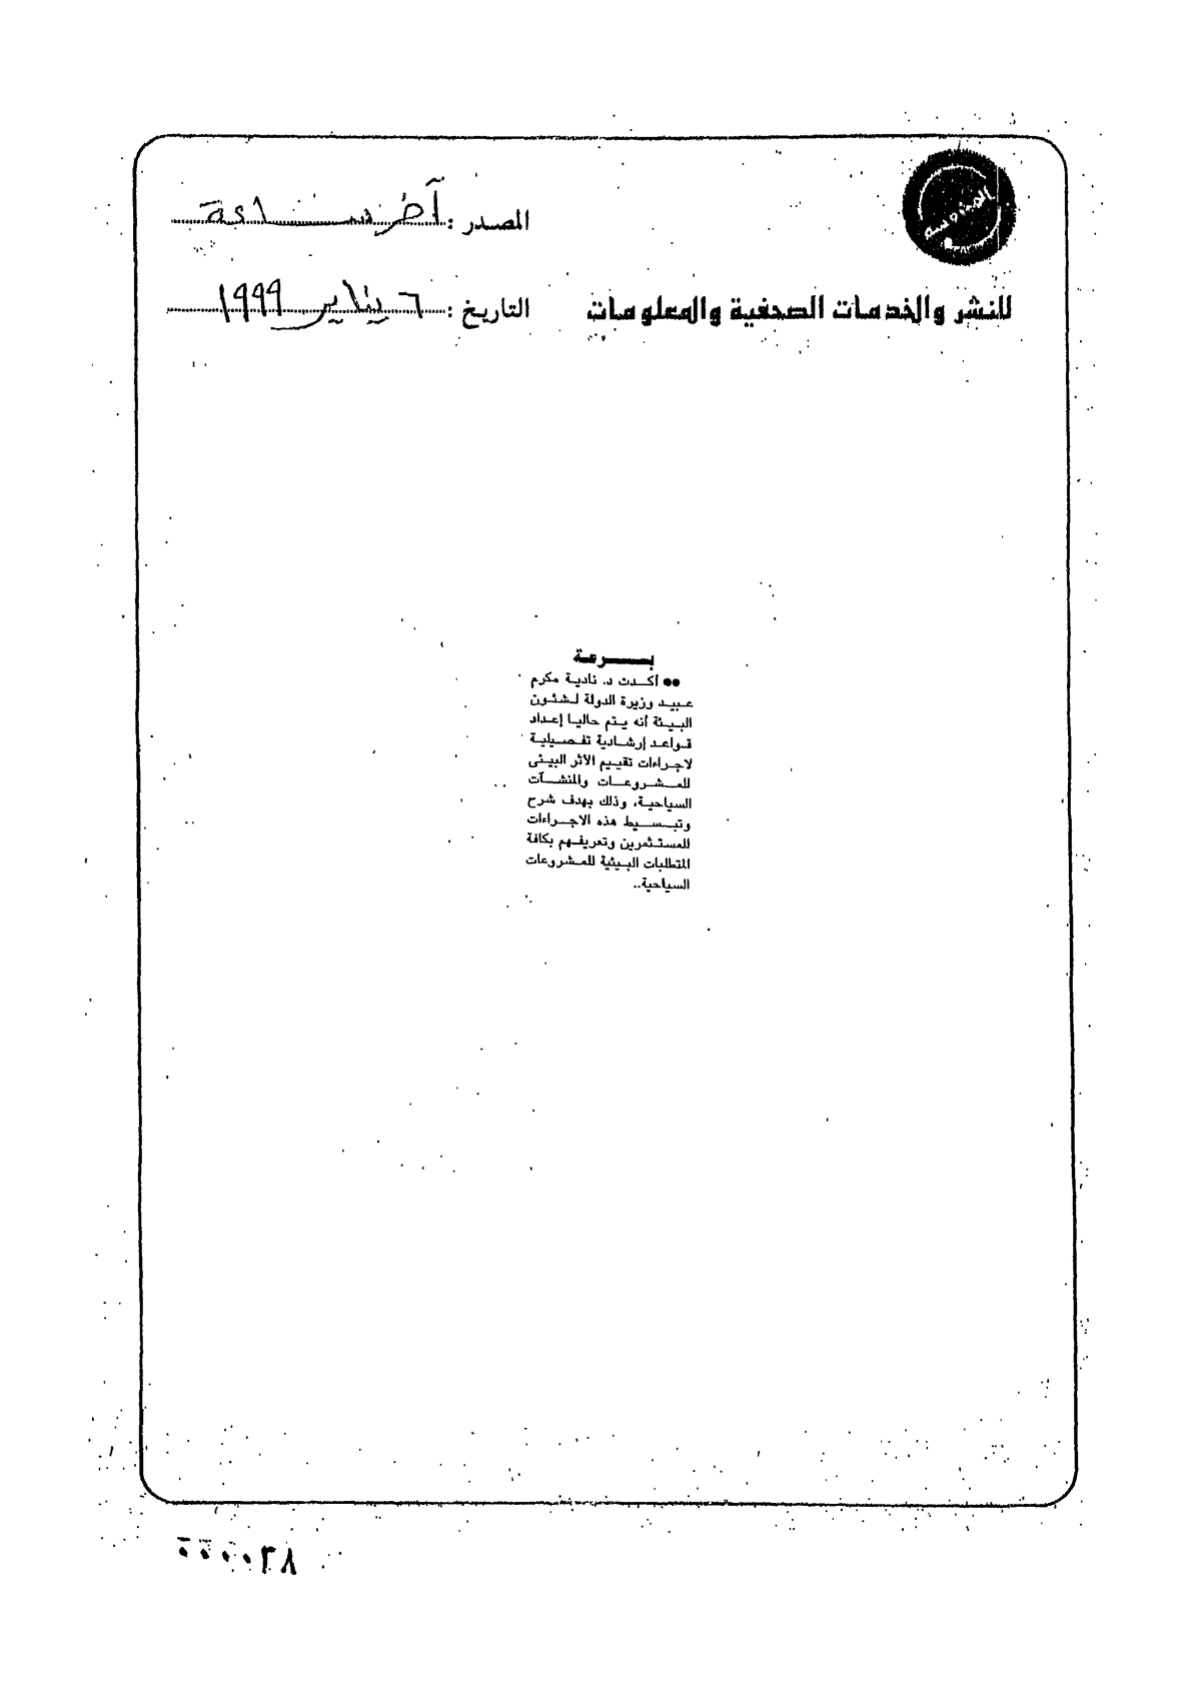 المحروسة
للنشر والخدمات الصحفية والمعلومات
المصدر : آخر ساعة
التاريخ : ٦ يناير ١٩٩٩
بسرعة
●● أكدت د. نادية مكرم
عبيد وزيرة الدولة لشئون
البيئة أنه يتم حاليا إعداد
قواعد إرشادية تفصيلية
لاجراءات تقييم الأثر البيئى
للمشروعات والمنشآت
السياحية، وذلك بهدف شرح
وتبسيط هذه الاجراءات
للمستثمرين وتعريفهم بكافة
المتطلبات البيئية للمشروعات
السياحية..